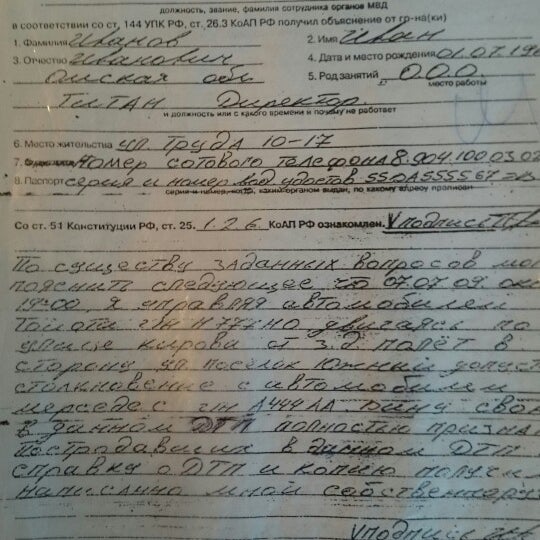 должность, звание, фамилия сотрудника органов МВД
в соответствии со ст, 144 УПК РФ, ст. 26.3 КоАП РФ получил объяснение от гр-на(ки)
1. Фамилия Иванов 2. Имя Иван
3. Отчество Иванович 4. Дата и место рождения 01.07.19
Омская обл 5. Род занятий О.О.О.
место работы
Титан Директор.
и должность или с какого времени и почему не работает
6. Место жительства ул. Труда 10-17
7. Номер сотового телефона 8.904.100 03.02
8. Паспорт серия и номер вод удостов 55ОА555567
серия и номер, когда, каким органом выдан, по какому адресу прописан
Со ст. 51 Конституции РФ, ст. 25. 1.2.6. КоАП РФ ознакомлен. V подпись
По существу заданных вопросов мо
пояснить следующее что 07.07.09 око
19:00, я управляя автомобилем
Тойота г/н Н777НО двигаясь по
улице Кирова от з.д полёт в
сторону ул посёлок Южный допуст
столкновение с автомобилем
мерседес г/н А444АА вину сво
в данном ДТП полностью призна
Пострадавших в данном ДТП
справку о ДТП и копию получил
написанно мной собственнору
V подпись